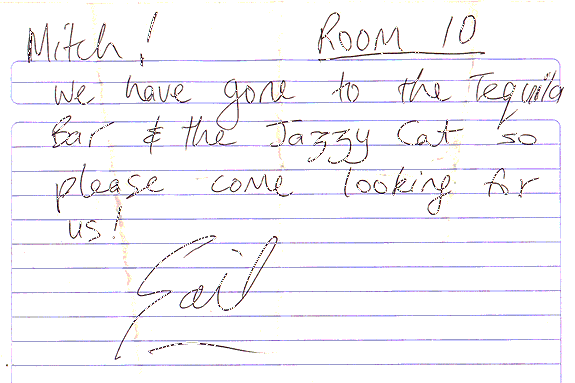 Mitch! ROOM 10
We have gone to the Tequila
Bar & the Jazzy Cat so
please come looking for
us!
Gail